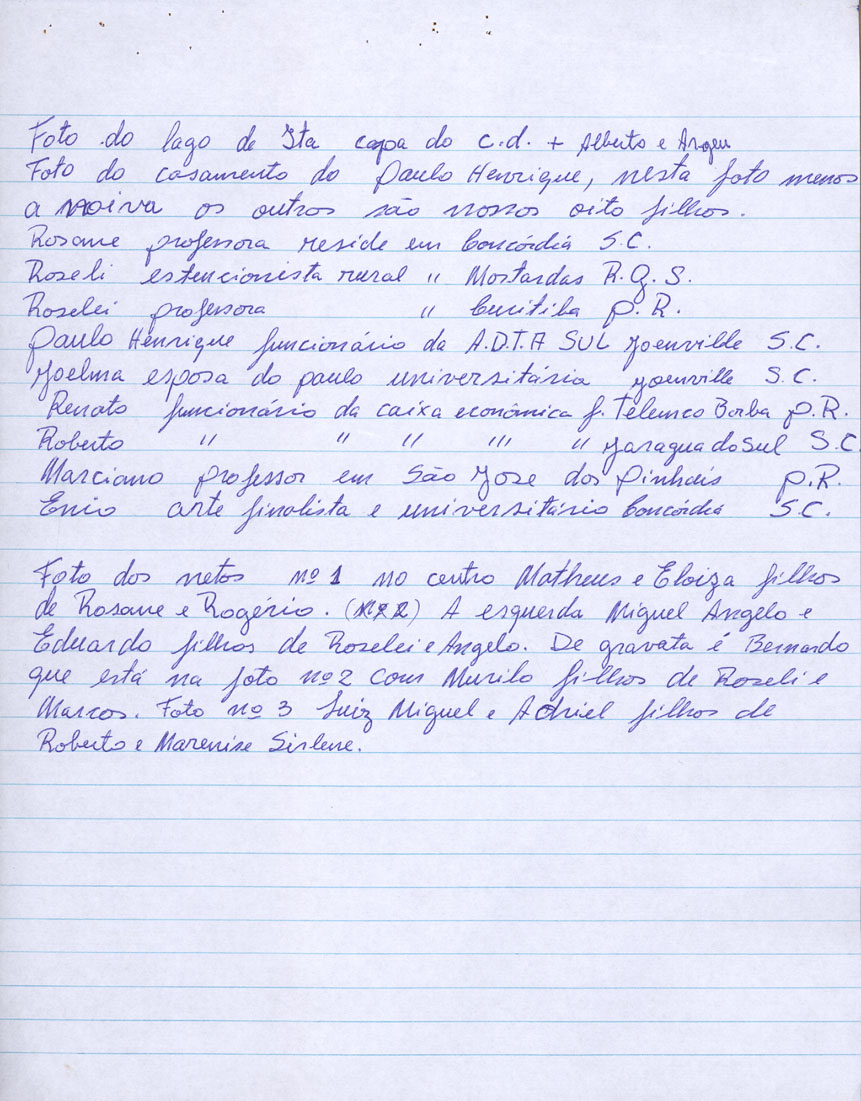 Foto do lago de Ita capa do c.d. + Alberto e
Foto do casamento do Paulo Henrique, nesta foto menos
a noiva os outros são nossos oito filhos.
Rosane professora reside em Concórdia S.C.
Roseli estencionista rural " Mostardas R.G.S.
Roselei professora " Curitiba P.R.
Paulo Henrique funcionário da A.D.T.A SUL Joenville S.C.
Joelma esposa do paulo universitária Joenville S.C.
Renato funcionário da caixa econômica f. Telemco Borba P.R.
Roberto " " " " " Jaragua do Sul S.C.
Marciano professor em São Jose dos Pinhais P.R.
Enio arte finalista e universitário Concórdia S.C.
Foto dos netos nº 1 no centro Matheus e Eloiza filhos
de Rosane e Rogério. (nº 2) A esquerda Miguel Angelo e
Eduardo filhos de Roselei e Angelo. De gravata é Bernardo
que está na foto nº 2 com Murilo filhos de Roseli e
Marcos. Foto nº 3 Luiz Miguel e Adriel filhos de
Roberto e Marenise Sirlene.